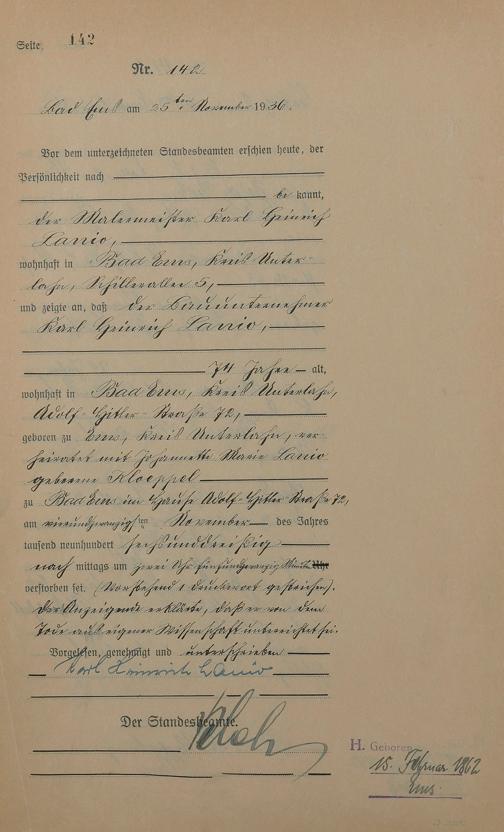 Seite 142
Nr. 142
Bad Ems am 25ten November 1936.
Vor dem unterzeichneten Standesbeamten erschien heute, der
Persönlichkeit nach
be kannt,
der Malermeister Karl Heinrich
Lanio,
wohnhaft in Bad Ems, Kreis Unter-
lahn, Schillerallee 5,
und zeigte an, daß der Bauunternehmer
Karl Heinrich Lanio,
74 Jahre alt,
wohnhaft in Bad Ems, Kreis Unterlahn,
Adolf-Hitler-Straße 72,
geboren zu Ems, Kreis Unterlahn, ver-
heiratet mit Johannette Marie Lanio
geborene Kloeppel
zu Bad Ems im Hause Adolf-Hitler Straße 72,
am vierundzwanzigsten November des Jahres
tausend neunhundert sechsunddreißig
nach mittags um zwei Uhr fünfundzwanzig Minuten Uhr
verstorben sei. (Vorstehend 1 Druckwort gestrichen).
Der Anzeigende erklärte, daß er von dem
Tode aus eigener Wissenschaft unterrichtet sei.
Vorgelesen, genehmigt und unterschrieben
Karl Heinrich Lanio
Der Standesbeamte.
H. Geboren
15. Februar 1862
Ems.